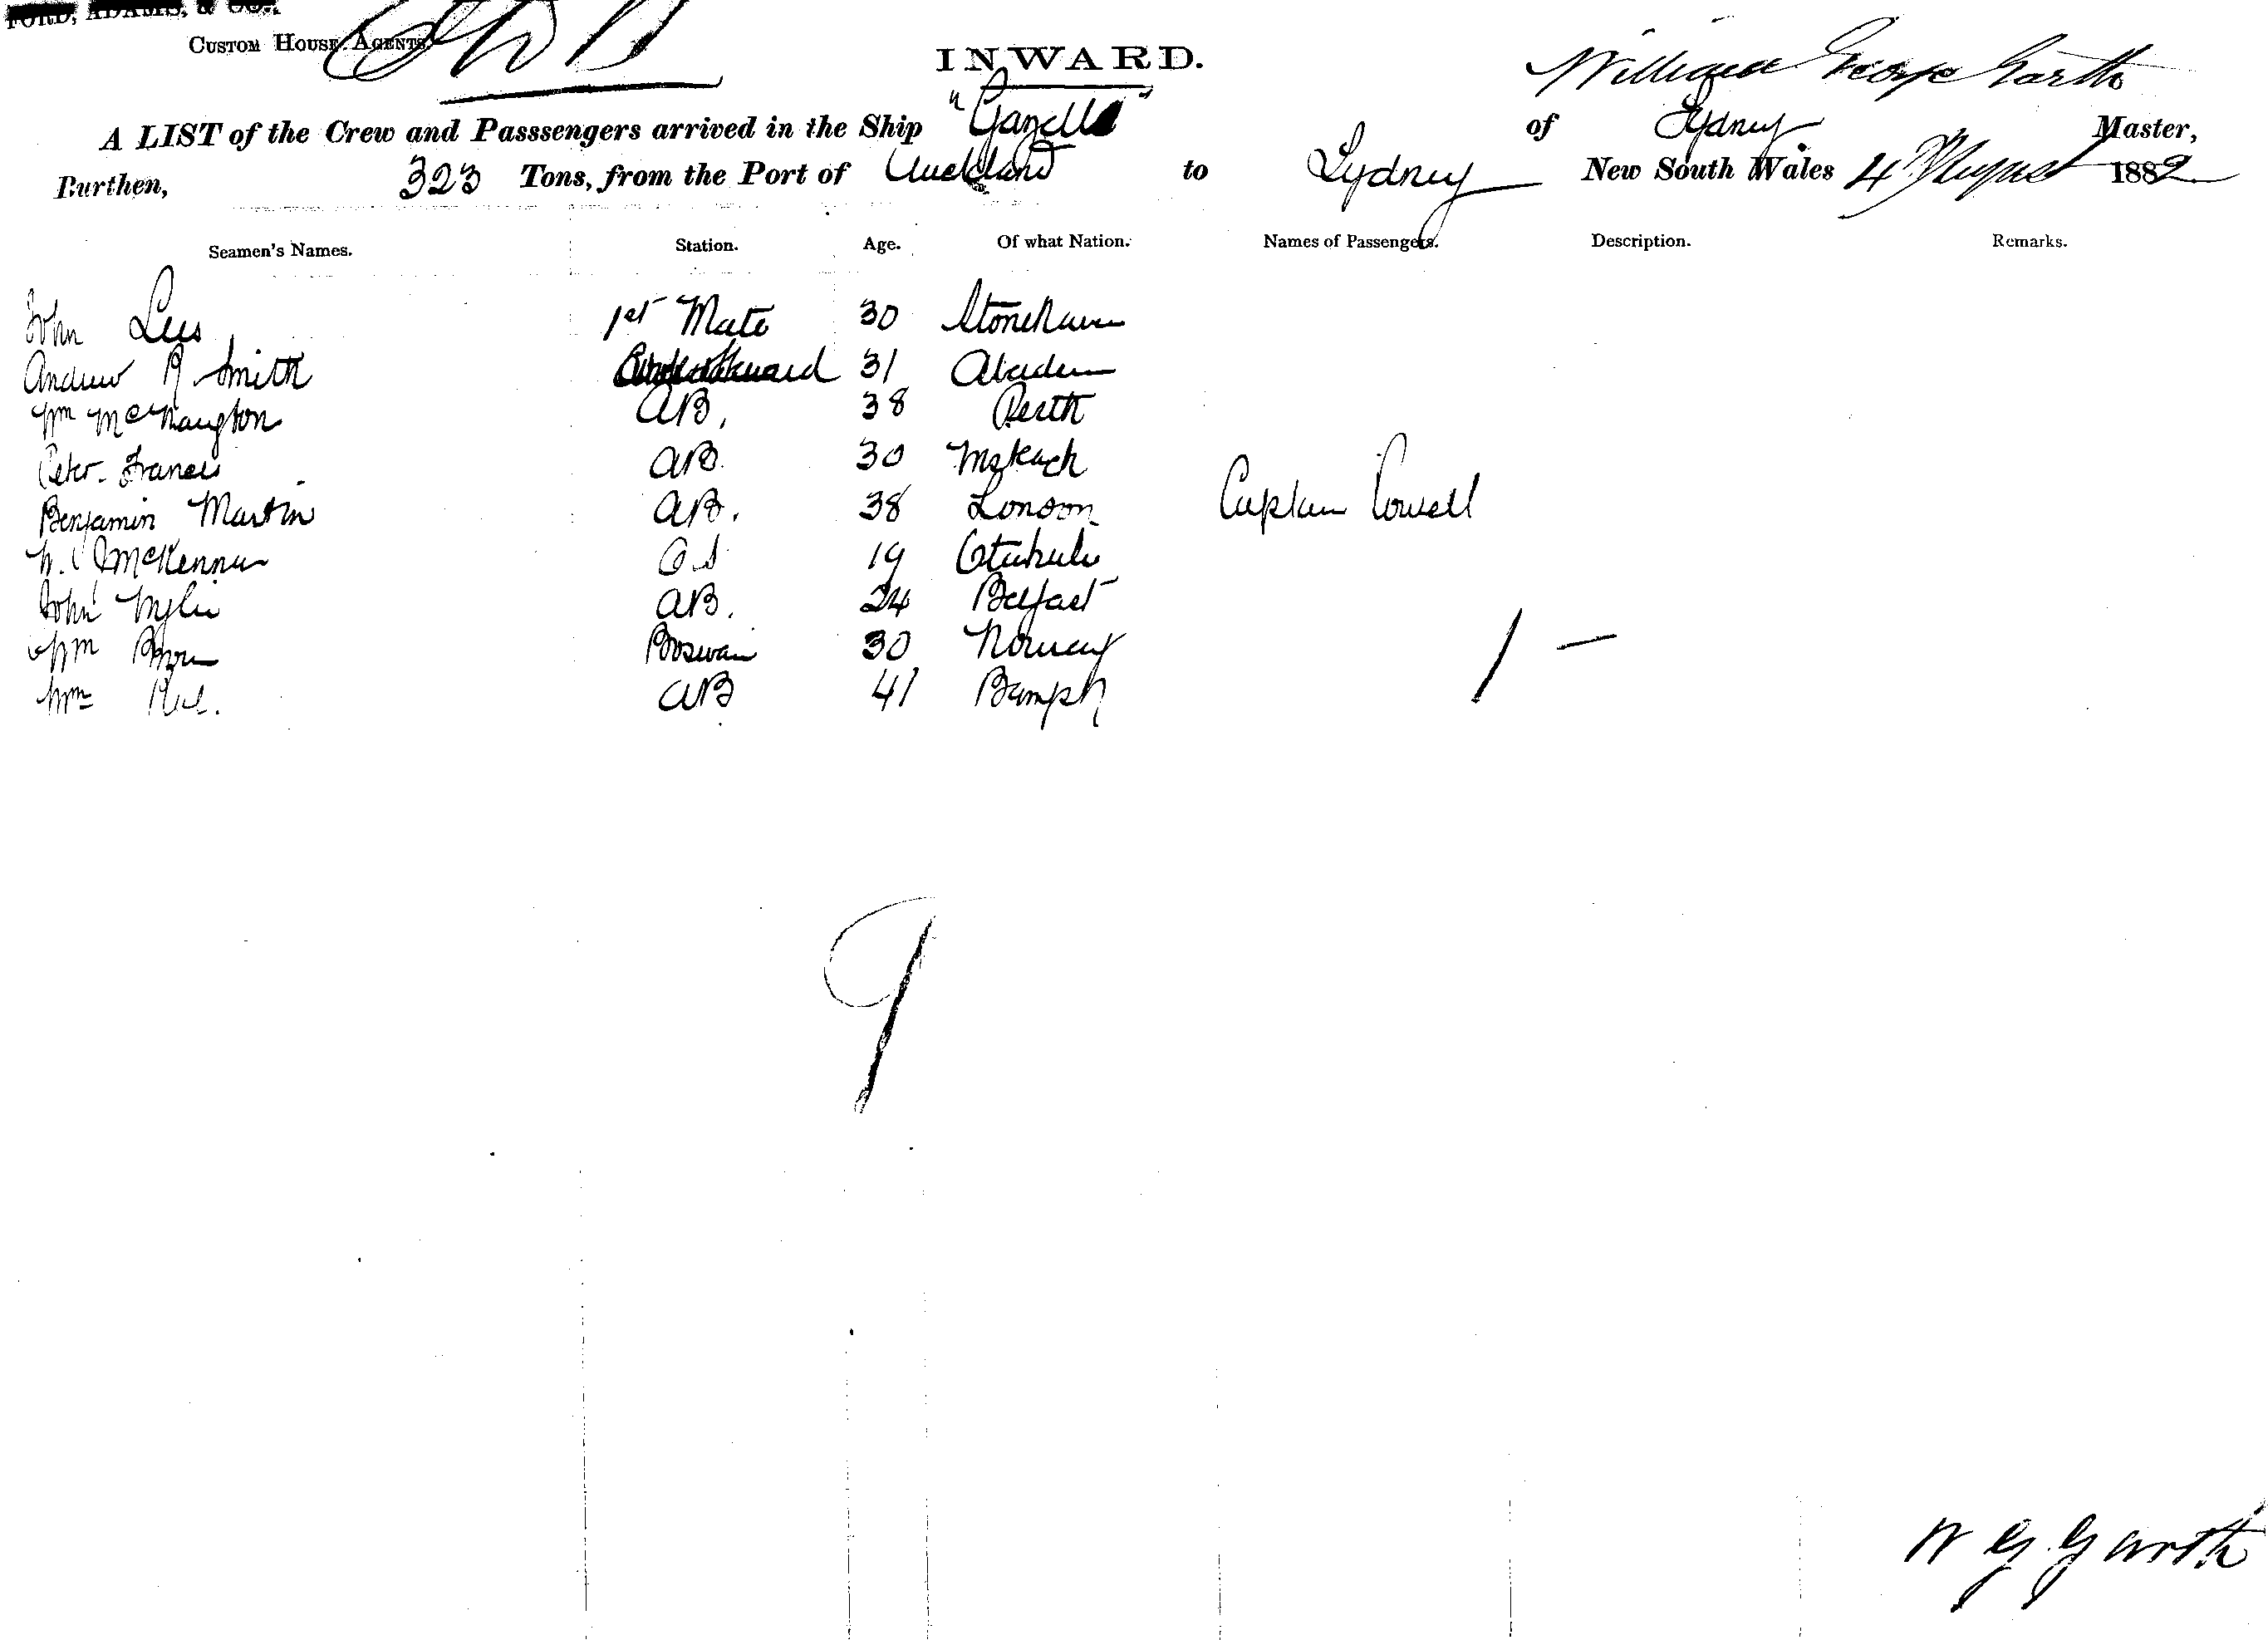 FORD, ADAMS, & CO.,
CUSTOM HOUSE AGENTS.
INWARD.
William George Garth
A LIST of the Crew and Passsengers arrived in the Ship "Gazelle" of Sydney Master,
Burthen, 323 Tons, from the Port of Auckland to Sydney New South Wales 4 August 1882
Seamen's Names. Station. Age. Of what Nation. Names of Passengers. Description. Remarks.
John Lees 1st Mate 30 Stonehaven
Andrew R Smith 31 Aberdeen
Wm McNaugton AB. 38 Perth
Peter Francis AB. 30
Benjamin Martin AB. 38 London Captain Powell
W. McKenna O.S 19 Otahuhu
John Wylie AB. 24 Belfast
Wm Boswain 30 Norway
1 –
Wm AB 41 Bamph
9
W G Garth